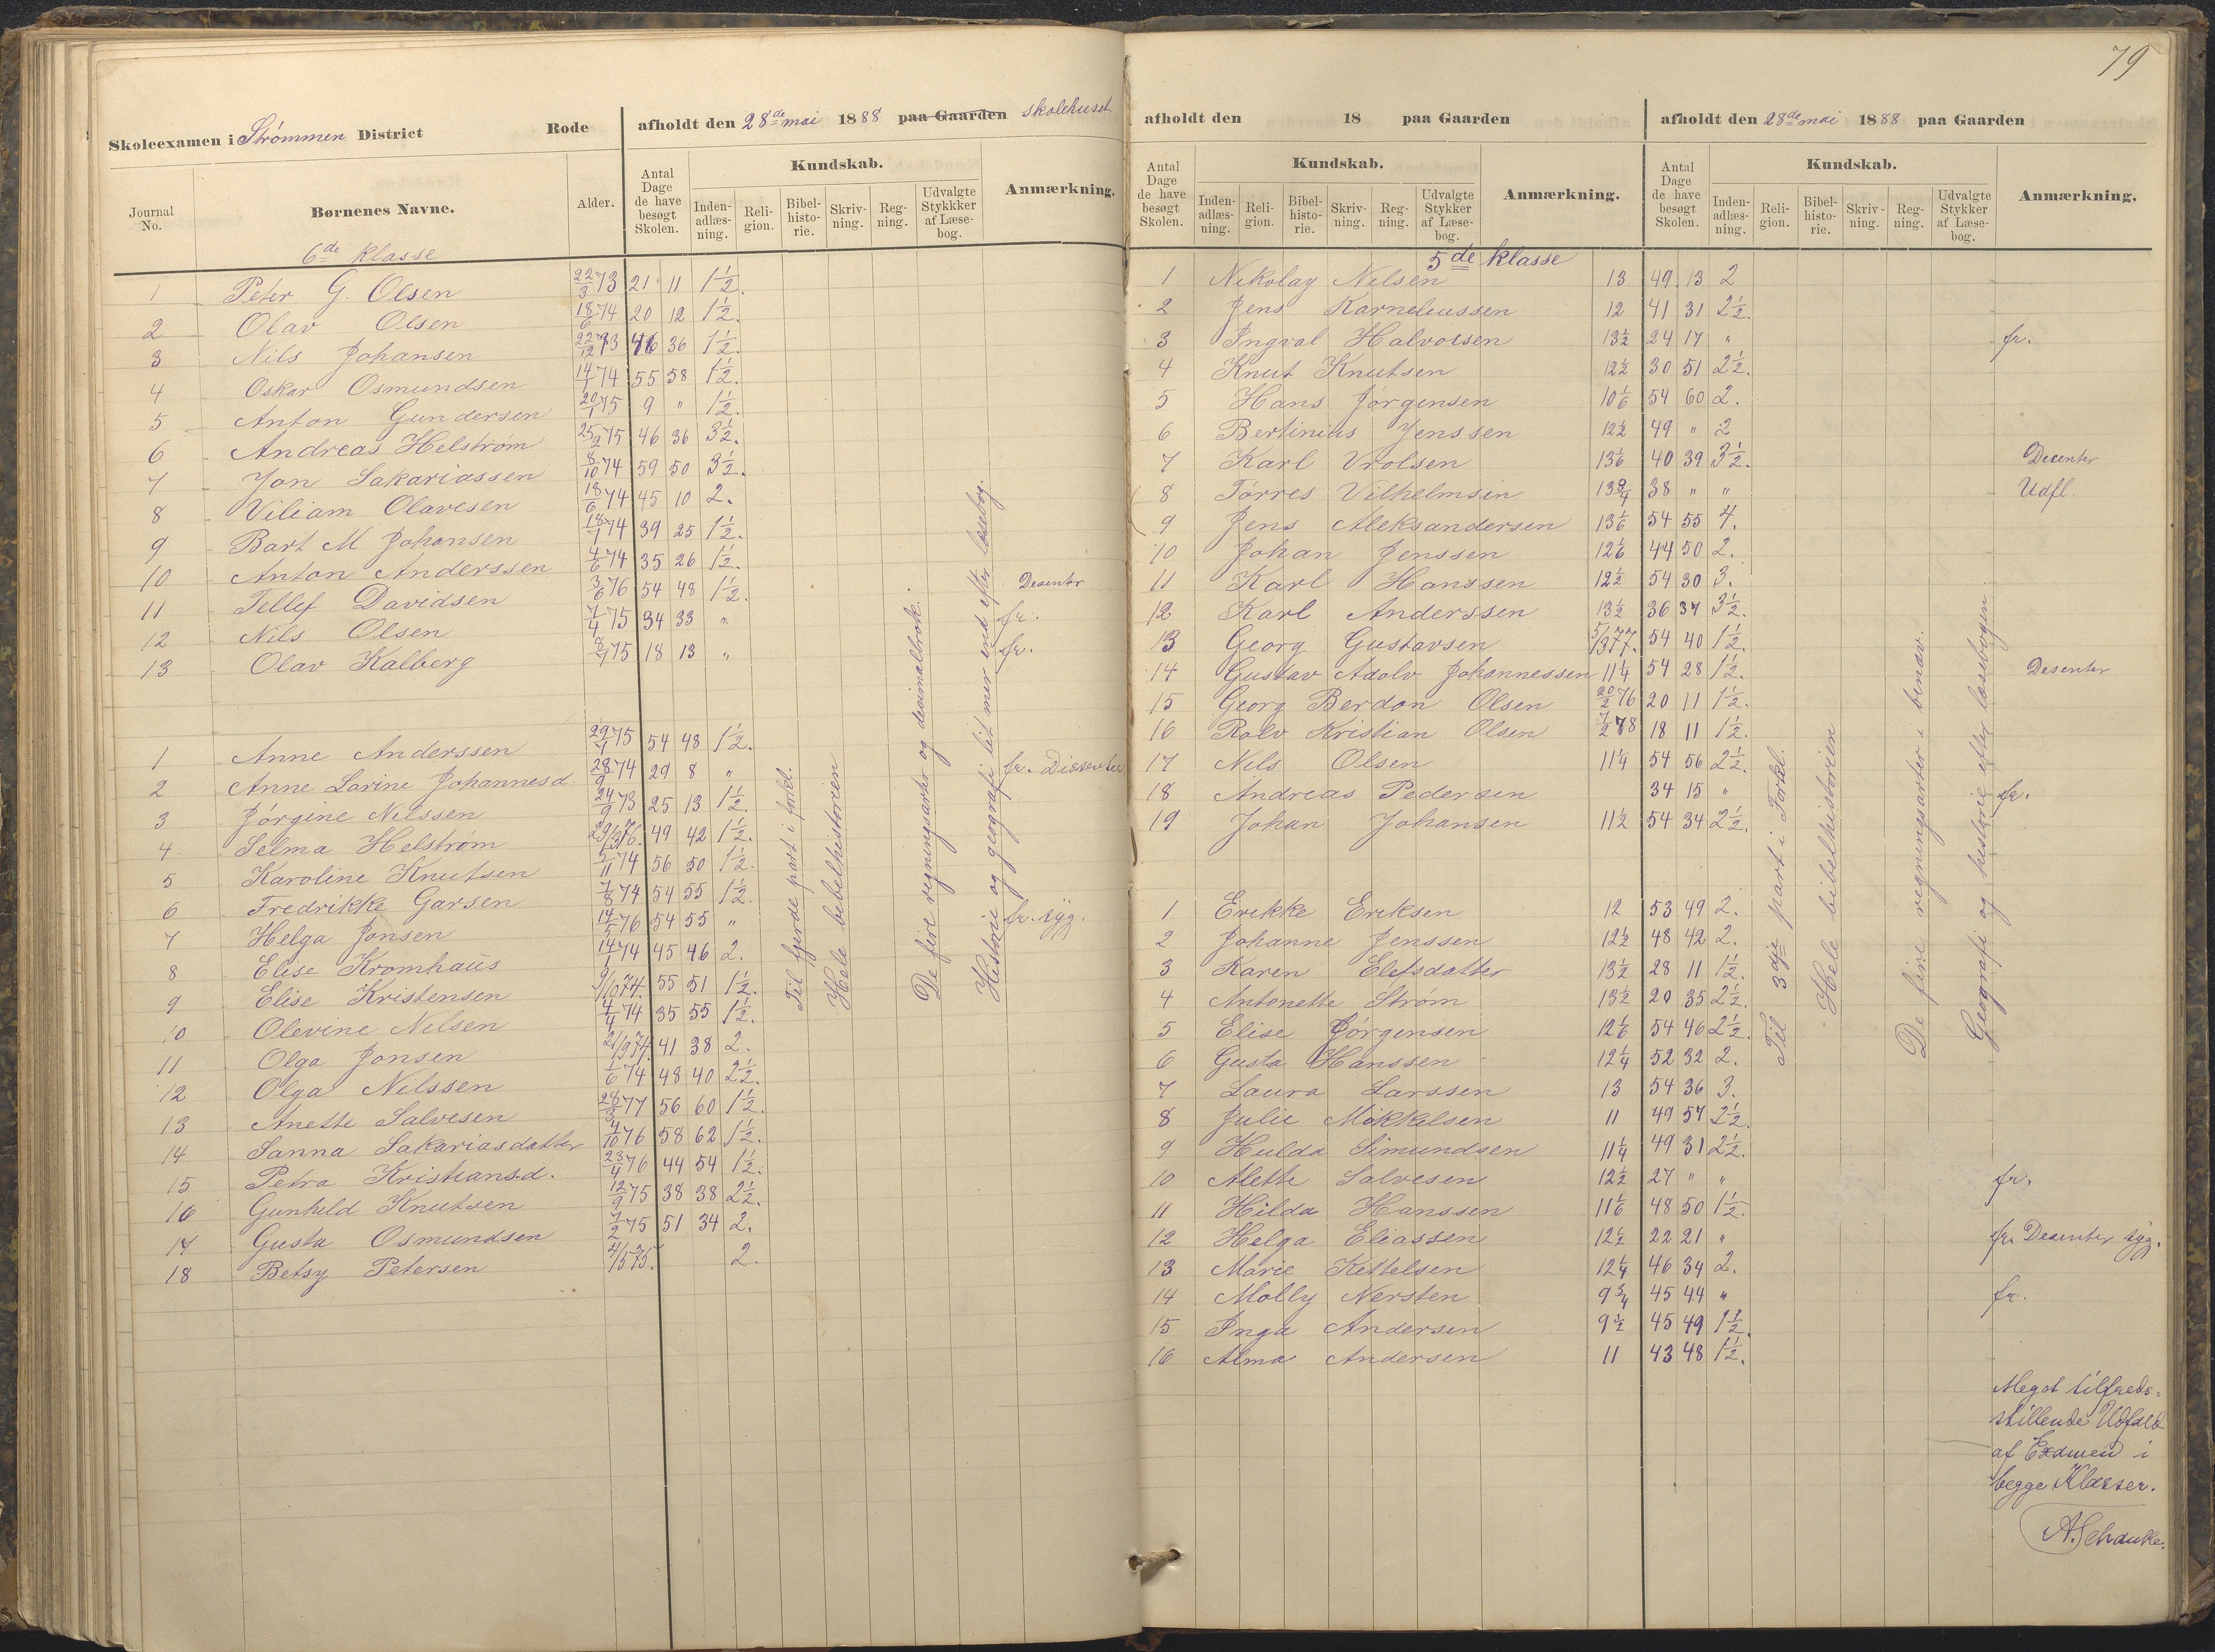 79
Skoleexamen i Strømmen District Rode afholdt den 28de mai 1888 paa Gaarden skolehuset
Journal No. Børnenes Navne. Alder. Antal Dage de have besøgt Skolen. Kundskab. Indenadlæsning. Religion. Bibelhistorie. Skrivning. Regning. Udvalgte Stykkker af Læsebog. Anmærkning.
6de klasse
1 Peter G. Olsen 22/3 73 21 11 1 1/2.
2 Olav Olsen 18/6 74 20 12 1 1/2.
3 Nils Johansen 22/12 73 46 36 1 1/2.
4 Oskar Osmundsen 14/1 74 55 58 1 1/2.
5 Anton Gundersen 20/1 75 9 " 1 1/2.
6 Andreas Helstrøm 25/2 75 46 36 3 1/2.
7 Jon Sakariassen 8/10 74 59 50 3 1/2.
8 Viliam Olavesen 18/6 74 45 10 2.
9 Bart M Johansen 18/1 74 39 25 1 1/2.
10 Anton Anderssen 4/6 74 35 26 1 1/2.
11 Tellef Davidsen 3/6 76 54 48 1 1/2. Desenter
12 Nils Olsen 7/4 75 34 33 " fr.
13 Olav Kalberg 75 18 13 " fr.
1 Anne Anderssen 29/1 75 54 48 1 1/2.
2 Anne Larine Johannesd. 28/9 74 29 8 " fr. Dissenter
3 Jørgine Nilssen 24/9 73 25 13 1 1/2.
4 Selma Helstrøm 29/3 76. 49 42 1 1/2.
5 Karoline Knutsen 5/11 74 56 50 1 1/2.
6 Fredrikke Garsen 7/8 74 54 55 1 1/2.
7 Helga Jonsen 14/5 76 54 55 " fr. syg.
8 Elise Kromhaus 14/1 74 45 46 2.
9 Elise Kristensen 9/10 74. 55 51 1 1/2.
10 Olevine Nilsen 4/4 74 35 55 1 1/2.
11 Olga Jonsen 21/9 74. 41 38 2.
12 Olga Nilssen 1/6 74 48 40 2 1/2.
13 Anette Salvesen 28/3 77 56 60 1 1/2.
14 Sanna Sakariasdatter 4/10 76 58 62 1 1/2.
15 Petra Kristiansd. 23/4 76 44 54 1 1/2.
16 Gunhild Knutsen 12/9 75 38 38 2 1/2.
17 Gusta Osmundsen 7/2 75 51 34 2.
18 Betsy Petersen 4/5 75. 2.
Til fjerde part i forkl.
Hele bebelhistorien
De fire regningsarter og decimalbrøk.
Historie og geografi lit mer end efter læsebog.
afholdt den 18 paa Gaarden afholdt den 28de mai 1888 paa Gaarden
Antal Dage de have besøgt Skolen. Kundskab. Indenadlæsning. Religion. Bibelhistorie. Skrivning. Regning. Udvalgte Stykker af Læsebog. Anmærkning. Antal Dage de have besøgt Skolen. Kundskab. Indenadlæsning. Religion. Bibelhistorie. Skrivning. Regning. Udvalgte Stykker af Læsebog. Anmærkning.
5de klasse
1 Nikolay Nilsen 13 49 13 2
2 Jens Karneliussen 12 41 31 2 1/2.
3 Ingval Halvorsen 13 1/2 24 17 " fr.
4 Knut Knutsen 12 1/2 30 51 2 1/2.
5 Hans Jørgensen 10 1/6 54 60 2.
6 Bertinius Jenssen 12 1/2 49 " 2
7 Karl Vrolsen 13 1/6 40 39 3 1/2. Decenter
8 Tørres Vilhelmsen 13 3/4 38 " " Udfl.
9 Jens Aleksandersen 13 1/6 54 55 4.
10 Johan Jenssen 12 1/6 44 50 2.
11 Karl Hanssen 12 1/2 54 30 3.
12 Karl Anderssen 13 1/2 36 37 3 1/2.
13 Georg Gustavsen 5/3 77. 54 40 1 1/2.
14 Gustav Adolv Johannessen 11 1/4 54 28 1 1/2. Desenter
15 Georg Berdon Olsen 20/2 76 20 11 1 1/2.
16 Rolv Kristian Olsen 7/2 78 18 11 1 1/2.
17 Nils Olsen 11 1/4 54 56 2 1/2.
18 Andreas Pedersen 34 15 " fr.
19 Johan Johansen 11 1/2 54 34 2 1/2.
1 Erikke Eriksen 12 53 49 2.
2 Johanne Jenssen 12 1/2 48 42 2.
3 Karen Elefsdatter 13 1/2 28 11 1 1/2.
4 Antonette Strøm 13 1/2 20 35 2 1/2.
5 Elise Jørgensen 12 1/6 54 46 2 1/2.
6 Gusta Hanssen 12 1/4 52 32 2.
7 Laura Larssen 13 54 36 3.
8 Julie Mikkelsen 11 49 57 2 1/2.
9 Hulda Simundsen 11 1/4 49 31 2 1/2.
10 Alette Salvesen 12 1/2 27 " " fr.
11 Hilda Hanssen 11 1/6 48 50 1 1/2.
12 Helga Eliassen 12 1/2 22 21 " fr. Desenter syg.
13 Marie Kettelsen 12 1/4 46 34 2.
14 Molly Nersten 9 3/4 45 44 " fr.
15 Inga Andersen 9 1/2 45 49 1 1/2.
16 Alma Andersen 11 43 48 1 1/2.
Til 3die part i Forkl.
Hele bibelhistorien
De fire regningsarter i benæv.
Geografi og historie efter læsebogen.
Meget tilfreds-
stillende Udfald
af Examen i
begge Klasser.
A. Schanke.